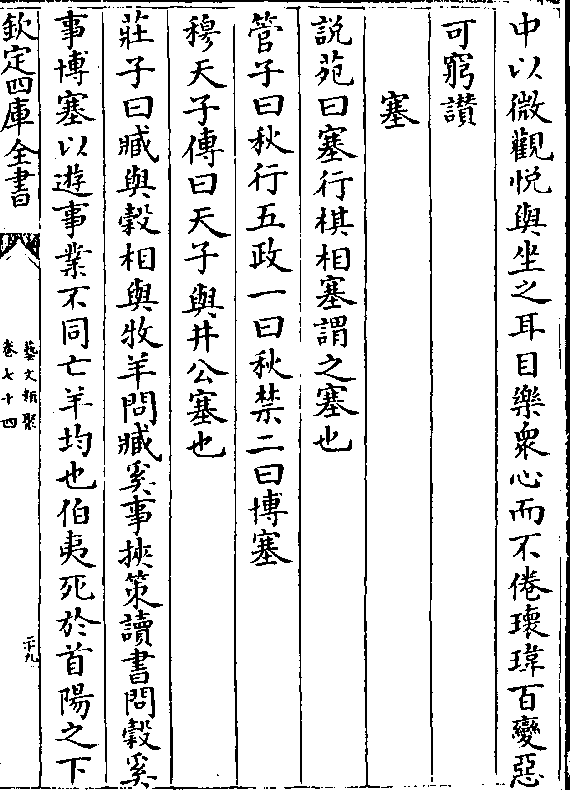 中以微觀恱與坐之耳目樂衆心而不倦瓌瑋百變惡
可窮讃
塞
說苑曰塞行棋相塞謂之塞也
管子曰秋行五政一曰秋禁二曰博塞
穆天子傳曰天子與井公塞也
莊子曰臧與榖相與牧羊問臧奚事挾䇿讀書問榖奚
事博塞以遊事業不同亡羊均也伯夷死於首陽之下
欽定四庫全書
藝文類聚
卷七十四
二十九